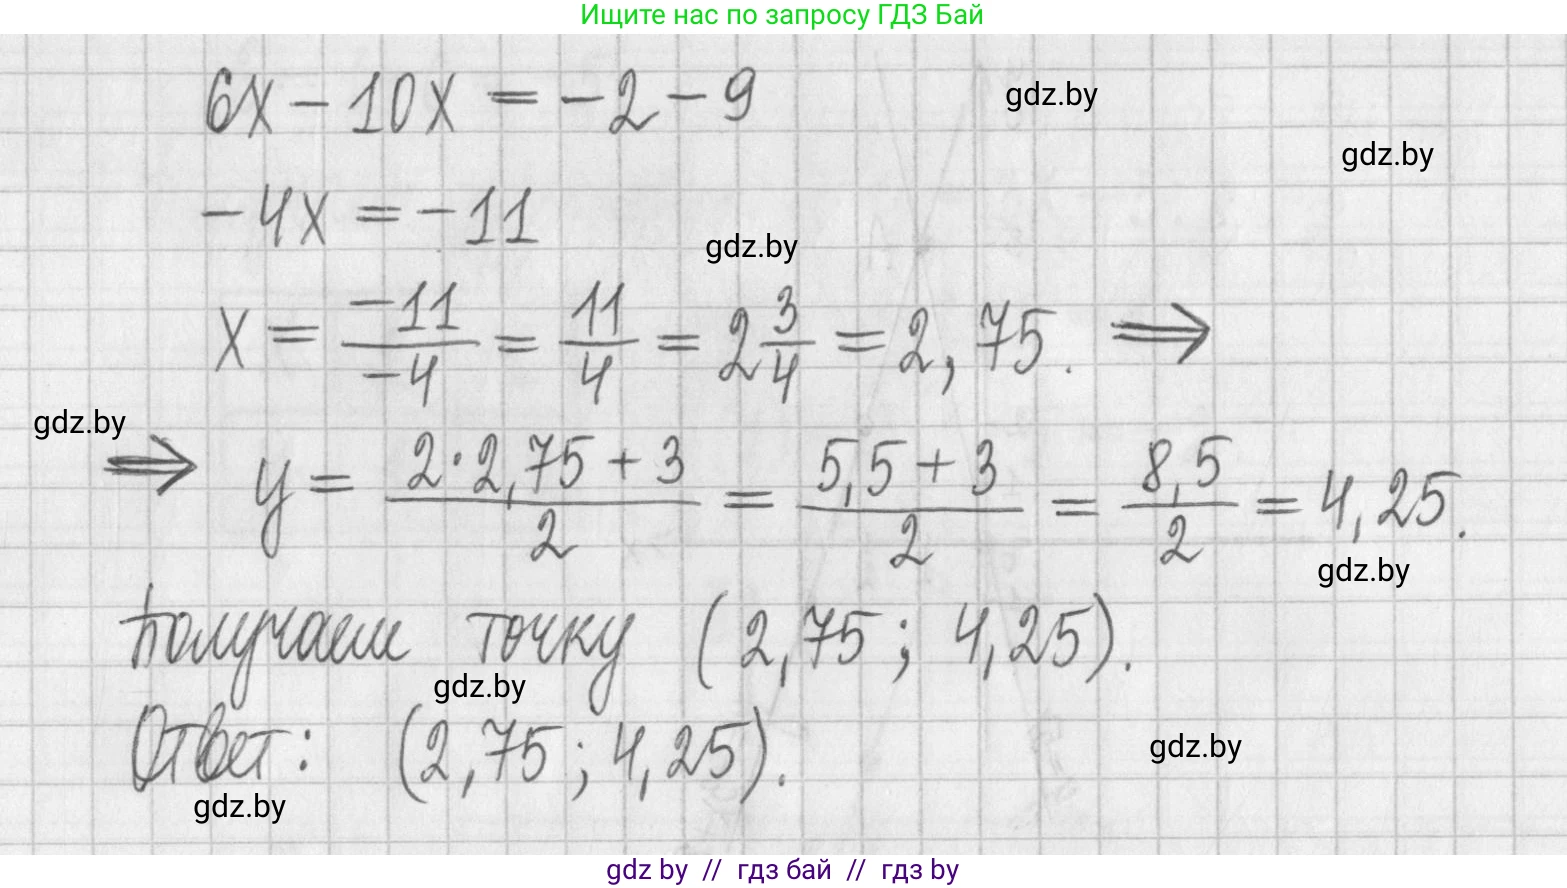 Ищите нас по запросу ГДЗ Бай
6x - 10x = -2 - 9
gdz.by
gdz.by
-4x = -11
gdz.by
x = -11/-4 = 11/4 = 2 3/4 = 2,75. ⇒
gdz.by
⇒ y = 2·2,75 + 3/2 = 5,5 + 3/2 = 8,5/2 = 4,25.
gdz.by
Получаем точку (2,75; 4,25).
gdz.by
Ответ: (2,75; 4,25).
gdz.by
gdz.by
gdz by // гдз бай // гдз by